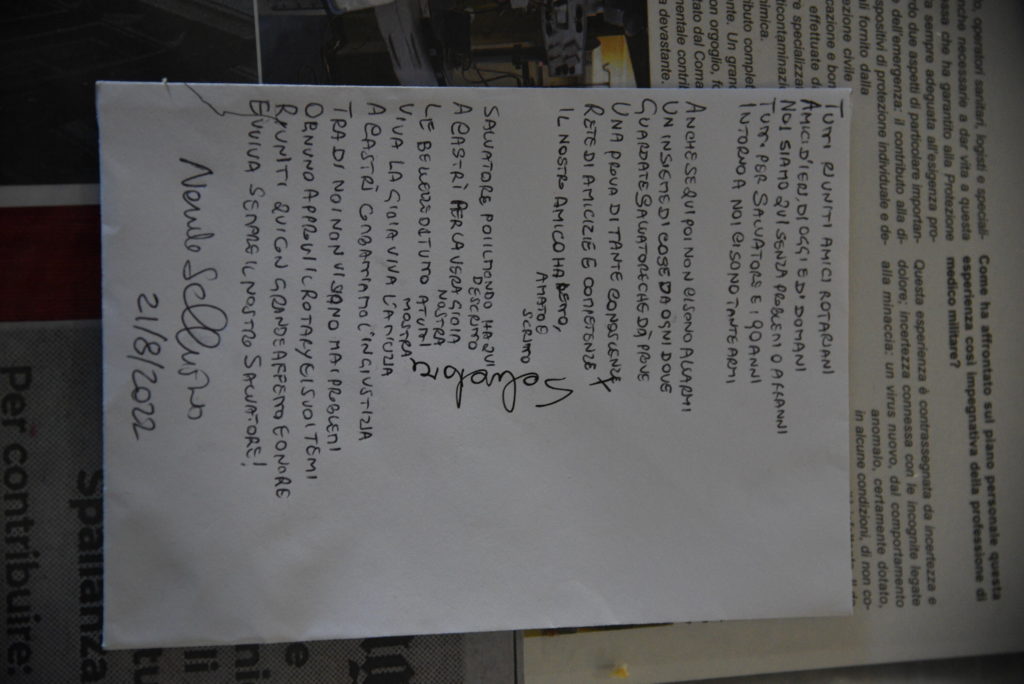 TUTTI RIUNITI AMICI ROTARIANI
AMICI D'IERI, DI OGGI E D'DOMANI
NOI SIAMO QUI SENZA PROBLEMI O AFFANNI
TUTTI PER SALVATORE E I 90 ANNI
INTORNO A NOI CI SONO TANTE ARMI
ANCHE SE QUI POI NON CI SONO ALLARMI
UN INSIEME DI COSE DA OGNI DOVE
GUARDATE SALVATORE CHE DÀ PROVE
UNA PROVA DI TANTE CONOSCENZE
RETE DI AMICIZIE E COMPETENZE
IL NOSTRO AMICO HA DETTO,
AMATO E
SCRITTO
SALVATORE POI IL MONDO HA QUI
DESCRITTO
A CASTRÌ PER LA VERA GIOIA
NOSTRA
LE BELLEZZE D'TUTTO A TUTTI
MOSTRA
VIVA LA GIOIA VIVA L'AMICIZIA
A CASTRÌ COMBATTIAMO L'INGIUSTIZIA
TRA DI NOI NON VI SIANO MAI PROBLEMI
OGNUNO APPROVI IL ROTARY E I SUOI TEMI
RIUNITI QUI CON GRANDE AFFETTO E ONORE
EVVIVA SEMPRE IL NOSTRO SALVATORE!
21/8/2022
to, operatori sanitari, logisti e speciali-
nche necessarie a dar vita a questa
essa che ha garantito alla Protezione
a sempre adeguata all'esigenza pro-
rdo due aspetti di particolare importan-
e dell'emergenza: il contributo alla di-
spositivi di protezione individuale e de-
ali fornito dalla
ezione civile
cazione e bon
effettuate d
re specializza
dicontaminazi
himica.
ibuto complet
nte. Un grand
on orgoglio, fo
tato dal Coma
mentale contri
a devastante
Come ha affrontato sul piano personale questa
esperienza così impegnativa della professione di
medico militare?
Questa esperienza è contrassegnata da incertezza e
dolore; incertezza connessa con le incognite legate
alla minaccia: un virus nuovo, dal comportamento
anomalo, certamente dotato,
in alcune condizioni, di non co-
Spallanza
Per contribuire: